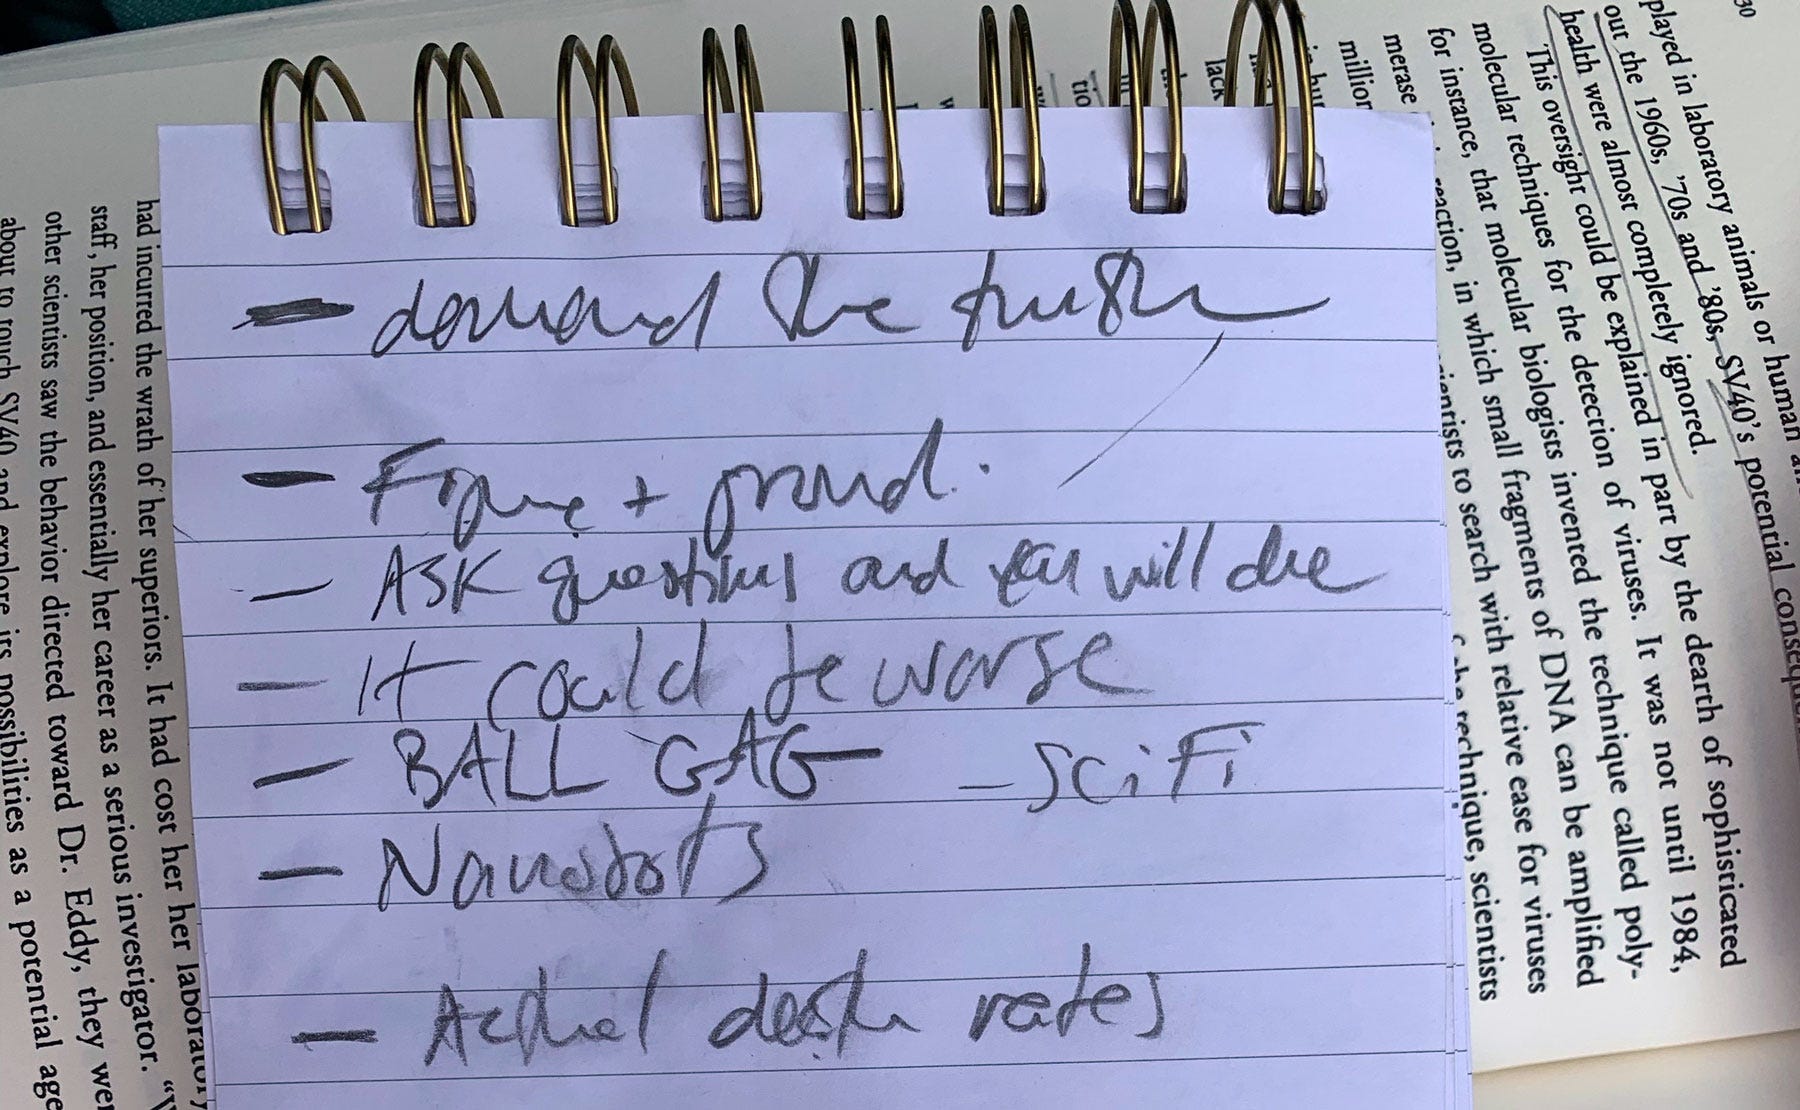 - demand the truth
- Figure + ground.
- ASK questions and you will die
- It could be worse
- BALL GAG - SciFi
- Nanobots
- Actual death rates
30
played in laboratory animals or human
out the 1960s, '70s and '80s, SV40's potential consequ
health were almost completely ignored.
This oversight could be explained in part by the dearth of sophisticated
molecular techniques for the detection of viruses. It was not until 1984,
for instance, that molecular biologists invented the technique called poly-
merase reaction, in which small fragments of DNA can be amplified
million scientists to search with relative ease for viruses
technique, scientists
lack
had incurred the wrath of her superiors. It had cost her her laboratory
staff, her position, and essentially her career as a serious investigator.
other scientists saw the behavior directed toward Dr. Eddy, they wer
about to touch SV40 and explore its possibilities as a potential age